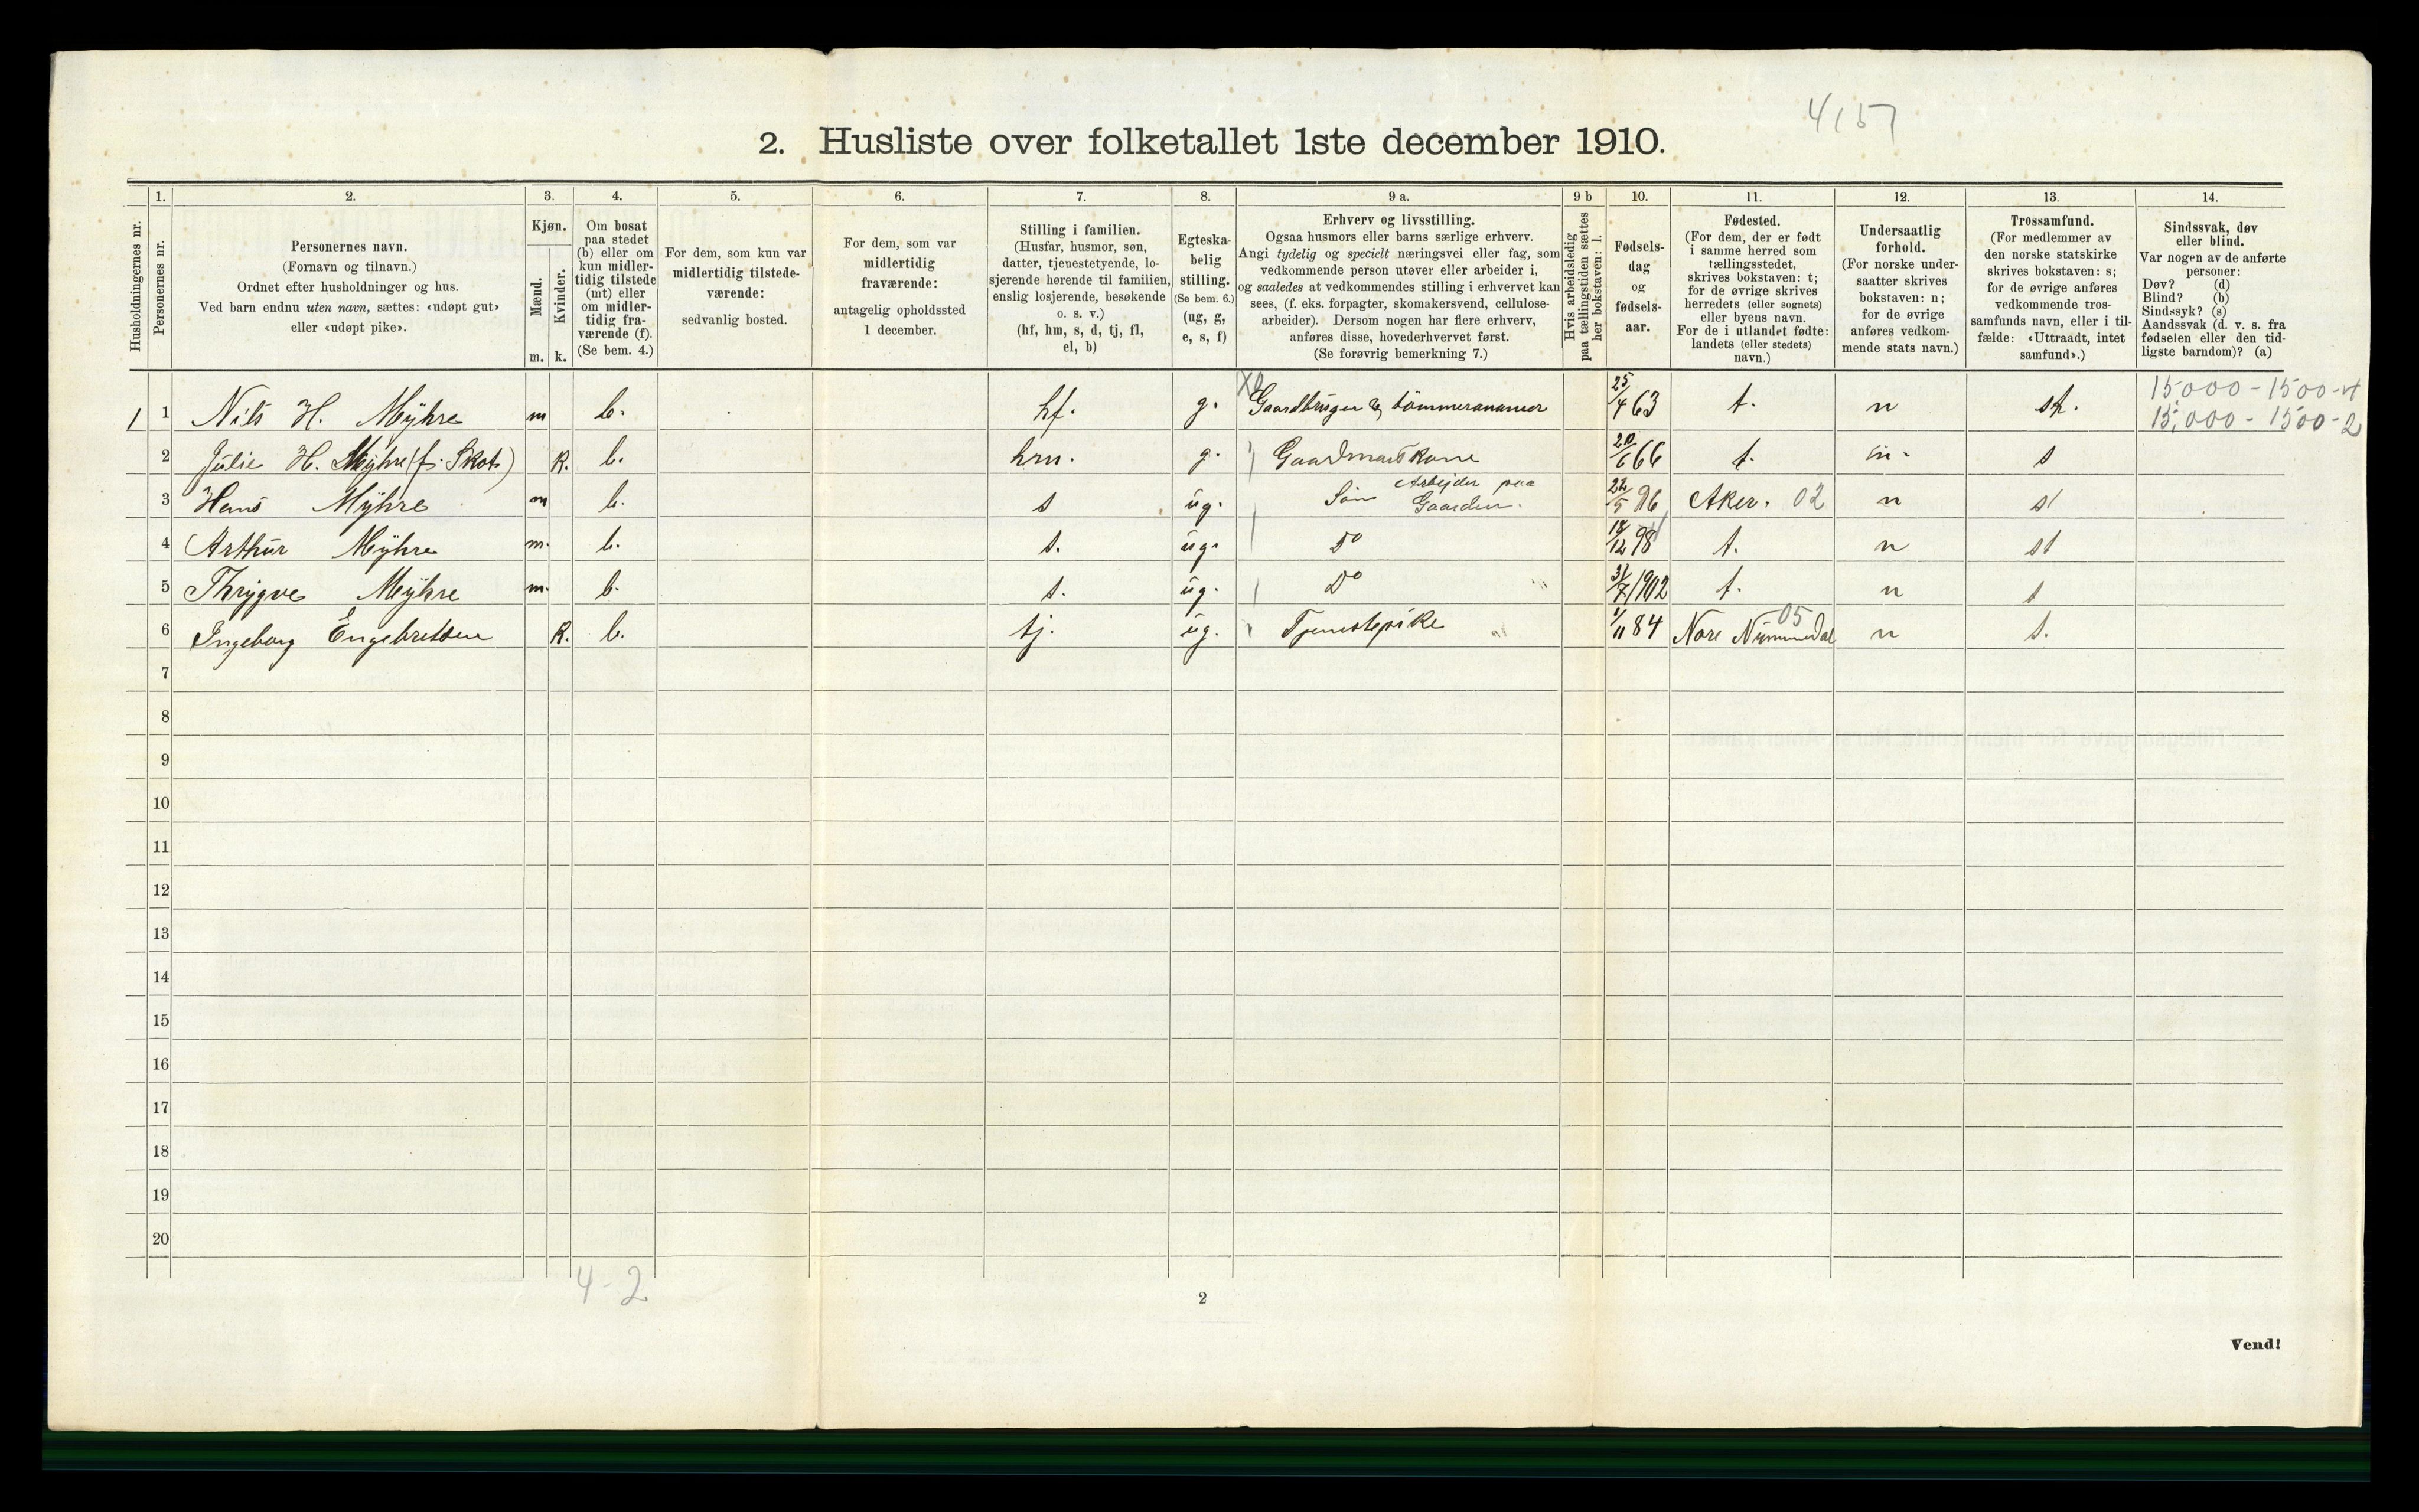 4157
2. Husliste over folketallet 1ste december 1910.
Husholdningernes nr.
1.
Personernes nr.
2.
Personernes navn.
(Fornavn og tilnavn.)
Ordnet efter husholdninger og hus.
Ved barn endnu uten navn, sættes: «udøpt gut»
eller «udøpt pike».
3.
Kjøn.
Mænd.
Kvinder.
m. k.
4.
Om bosat
paa stedet
(b) eller om
kun midler-
tidig tilstede
(mt) eller
om midler-
tidig fra-
værende (f).
(Se bem. 4.)
5.
For dem, som kun var
midlertidig tilstede-
værende:
sedvanlig bosted.
6.
For dem, som var
midlertidig
fraværende:
antagelig opholdssted
1 december.
7.
Stilling i familien.
(Husfar, husmor, søn,
datter, tjenestetyende, lo-
sjerende hørende til familien,
enslig losjerende, besøkende
o. s. v.)
(hf, hm, s, d, tj, fl,
el, b)
8.
Egteska-
belig
stilling.
(Se bem. 6.)
(ug, g,
e, s, f)
9 a.
Erhverv og livsstilling.
Ogsaa husmors eller barns særlige erhverv.
Angi tydelig og specielt næringsvei eller fag, som
vedkommende person utøver eller arbeider i,
og saaledes at vedkommendes stilling i erhvervet kan
sees, (f. eks. forpagter, skomakersvend, cellulose-
arbeider). Dersom nogen har flere erhverv,
anføres disse, hovederhvervet først.
(Se forøvrig bemerkning 7.)
9 b
Hvis arbeidsledig
paa tællingstiden sættes
her bokstaven: l.
10.
Fødsels-
dag
og
fødsels-
aar.
11.
Fødested.
(For dem, der er født
i samme herred som
tællingsstedet,
skrives bokstaven: t;
for de øvrige skrives
herredets (eller sognets)
eller byens navn.
For de i utlandet fødte:
landets (eller stedets)
navn.)
12.
Undersaatlig
forhold.
(For norske under-
saatter skrives
bokstaven: n;
for de øvrige
anføres vedkom-
mende stats navn.)
13.
Trossamfund.
(For medlemmer av
den norske statskirke
skrives bokstaven: s;
for de øvrige anføres
vedkommende tros-
samfunds navn, eller i til-
fælde: «Uttraadt, intet
samfund».)
14.
Sindssvak, døv
eller blind.
Var nogen av de anførte
personer:
Døv? (d)
Blind? (b)
Sindssyk? (s)
Aandssvak (d. v. s. fra
fødselen eller den tid-
ligste barndom)? (a)
15000 - 1500 - 4
15,000 - 1500 - 2
1 1 Nils H. Myhre m b. hf. g. Gaardbruger & 25/4 63 t. n
2 Julie H. Myhre (f. Skot) k. b. hm. g. Gaardmandskone 20/6 66 t. n. s
3 Hans Myhre m b. s ug. Søn Arbejder paa Gaarden. 22/5 96 Aker. 02 n
4 Arthur Myhre m. b. s. ug. Do 98 t. n
5 Thrygve Myhre m. b. s. ug. Do 1902 t. n s
6 Ingeborg Engebretsen k. b. tj. ug. Tjenestepike 1/11 84 Nore Nummedal 05 n s.
7
8
9
10
11
12
13
14
15
16
17
18
19
20
4-2
2
Vend!